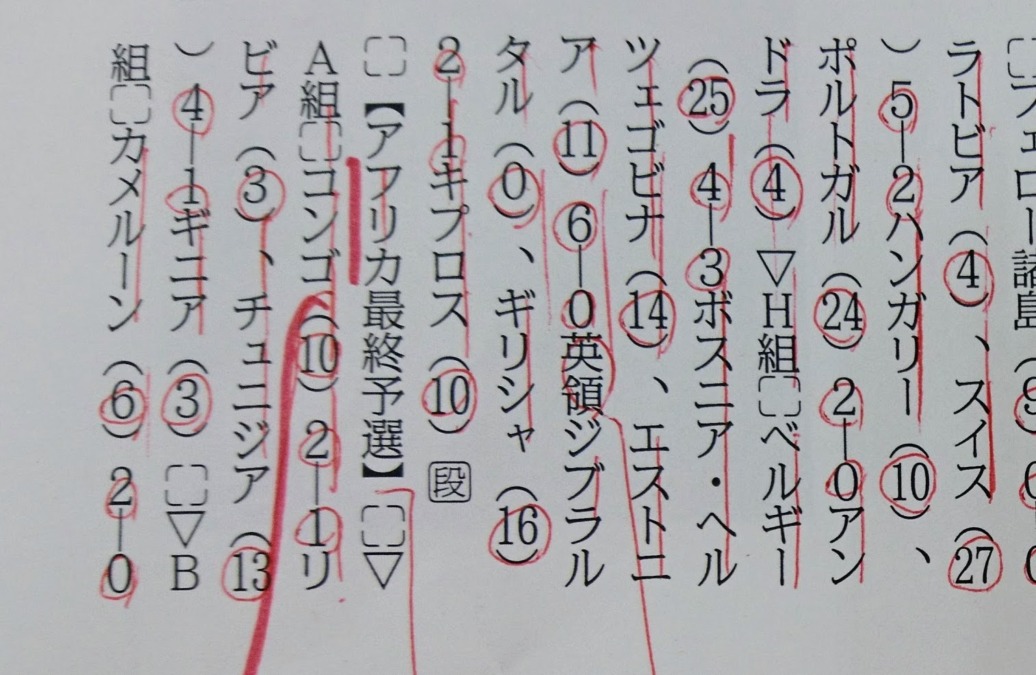 〔〕フェロー諸島（
ラトビア（4）、スイス（27
）5―2ハンガリー（10）、
ポルトガル（24）2―0アン
ドラ（4）▽H組〔〕ベルギー
（25）4―3ボスニア・ヘル
ツェゴビナ（14）、エストニ
ア（11）6―0英領ジブラル
タル（0）、ギリシャ（16）
2―1キプロス（10）段
〔〕【アフリカ最終予選】〔〕▽
A組〔〕コンゴ（10）2―1リ
ビア（3）、チュニジア（13
）4―1ギニア（3）〔〕▽B
組〔〕カメルーン（6）2―0